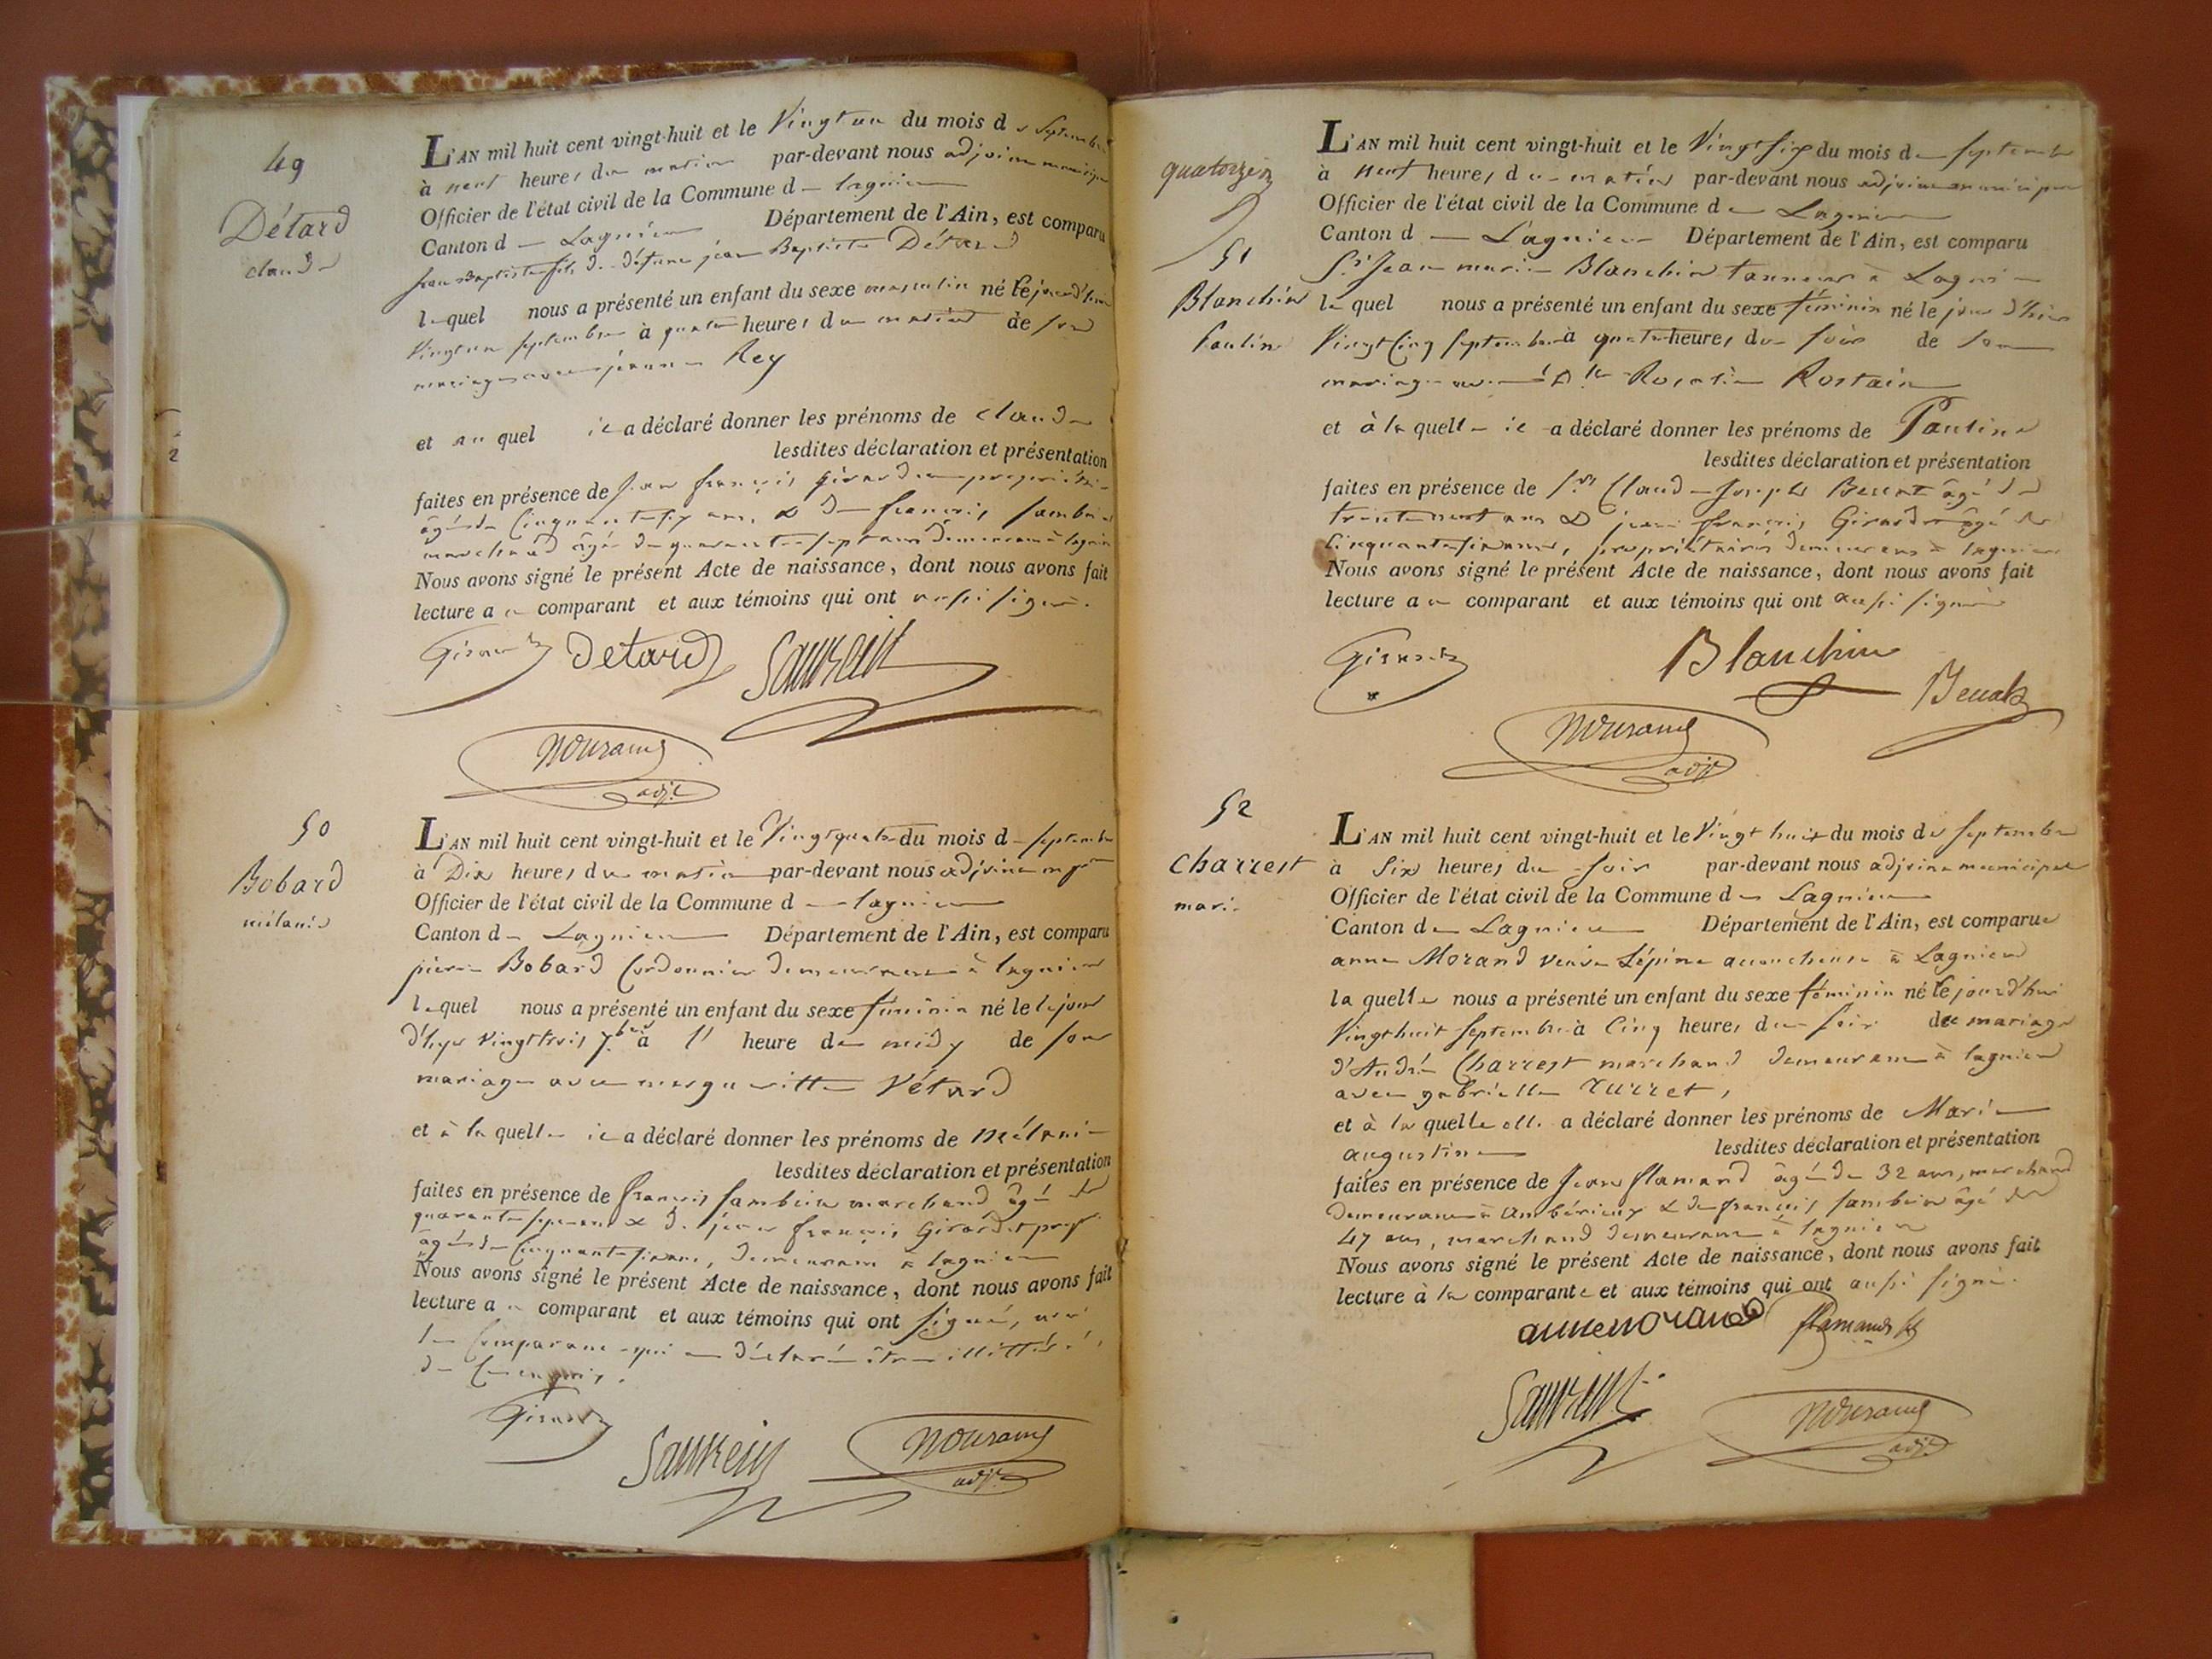 49
Détard
claude
L'AN mil huit cent vingt-huit et le Vingt un du mois de Septembre
à neuf heures du matin par-devant nous adjoint municipal
Officier de l'état civil de la Commune de lagnieu
Canton de Lagnieu Département de l'Ain, est comparu
Jean Baptiste fils de défunt jean Baptiste Détard
lequel nous a présenté un enfant du sexe masculin né le jourd'hui
Vingt un septembre à quatre heures du matin de son
mariage avec jeanne Rey
et au quel il a déclaré donner les prénoms de claude
lesdites déclaration et présentation
faites en présence de Jean françois Girardet propriétaire
âgé de Cinquante six ans, & de françois Sambein
marchand âgé de quarante sept ans demeurant à lagnieu
Nous avons signé le présent Acte de naissance, dont nous avons fait
lecture au comparant et aux témoins qui ont aussi signé.
Girardet Detard
adjt
50
Bobard
mélanie
L'AN mil huit cent vingt-huit et le Vingt quatre du mois de septembre
à Dix heures du matin par-devant nous adjoint mpal
Officier de l'état civil de la Commune de lagnieu
Canton de Lagnieu Département de l'Ain, est comparu
pierre Bobard Cordonnier demeurant à lagnieu
lequel nous a présenté un enfant du sexe féminin né le le jour
d'hyer Vingt trois 7bre à 1 heure de midy de son
mariage avec margueritte Vétard
et à la quelle il a déclaré donner les prénoms de Mélanie
lesdites déclaration et présentation
faites en présence de françois Sambein marchand âgé de
quarante sept ans & de jean françois Girardet propre
âgé de Cinquante six ans, demeurant à lagnieu
Nous avons signé le présent Acte de naissance, dont nous avons fait
lecture au comparant et aux témoins qui ont signé, non
le Comparant qui a déclaré être illittéré
de ce enquis.
Girardet
adjt
quatorze
51
Blanchin
Pauline
L'AN mil huit cent vingt-huit et le Vingt six du mois de septembre
à neuf heures du matin par-devant nous adjoint municipal
Officier de l'état civil de la Commune de Lagnieu
Canton de Lagnieu Département de l'Ain, est comparu
Sr Jean marie Blanchin tanneur à Lagnieu
lequel nous a présenté un enfant du sexe féminin né le jour d'hier
Vingt Cinq Septembre à quatre heures du soir de son
mariage avec Dlle Rosalie Rostain
et à la quelle il a déclaré donner les prénoms de Pauline
lesdites déclaration et présentation
faites en présence de Srs Claude Joseph âgé de
trente neuf ans & jean françois Girardet âgé de
Cinquante six ans, propriétaires demeurans à lagnieu
Nous avons signé le présent Acte de naissance, dont nous avons fait
lecture au comparant et aux témoins qui ont aussi signé
Girardet Blanchin
adjt
52
Charrest
marie
L'AN mil huit cent vingt-huit et le Vingt huit du mois de Septembre
à Six heures du soir par-devant nous adjoint municipal
Officier de l'état civil de la Commune de Lagnieu
Canton de Lagnieu Département de l'Ain, est comparue
anne Morand veuve Lépine accoucheuse à Lagnieu
la quelle nous a présenté un enfant du sexe féminin né le jourd'hui
Vingt huit Septembre à Cinq heures du soir du mariage
d'André Charrest marchand demeurant à lagnieu
avec gabrielle
et à la quelle elle a déclaré donner les prénoms de Marie
augustine lesdites déclaration et présentation
faites en présence de Jean flamand âgé de 32 ans, marchand
demeurant à Ambérieux & de françois Sambein âgé de
47 ans, marchand demeurant à lagnieu
Nous avons signé le présent Acte de naissance, dont nous avons fait
lecture à la comparante et aux témoins qui ont aussi signé.
anne morand flamand
adjt